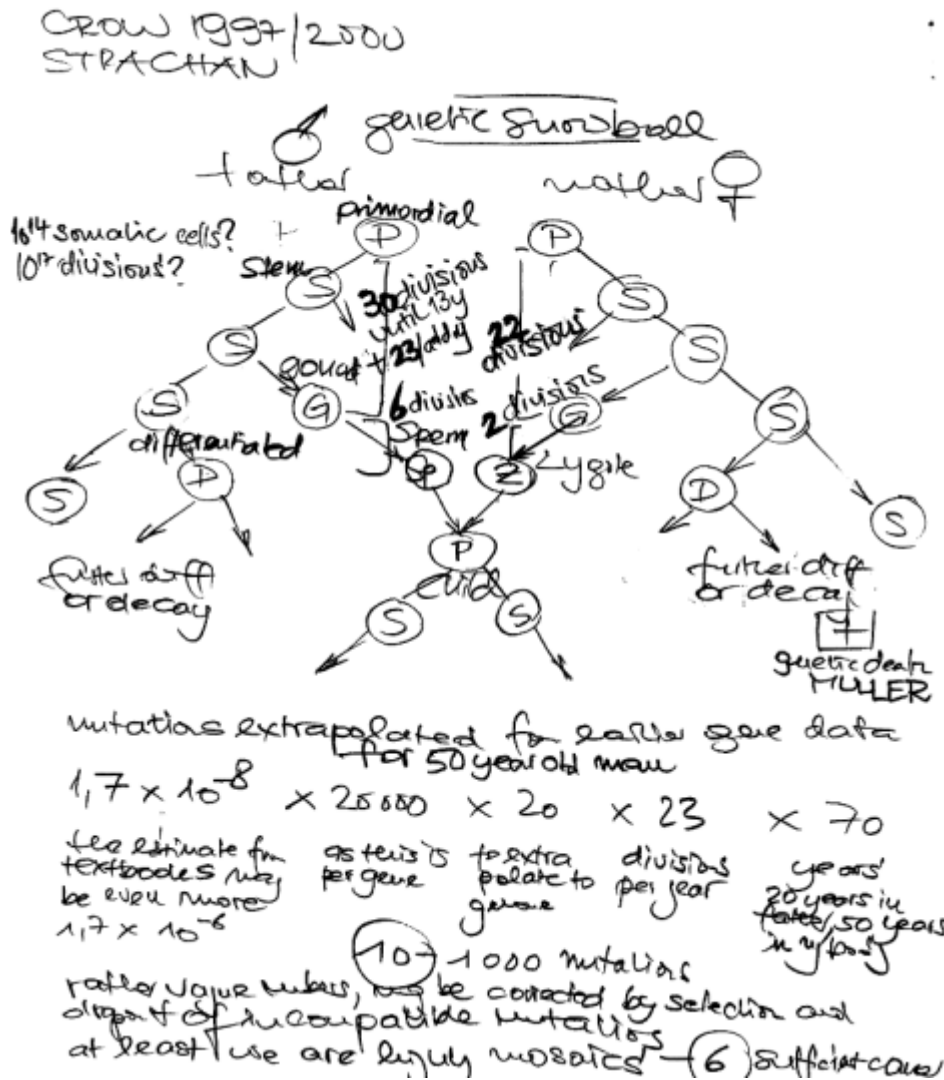 CROW 1997/2000
STRACHAN
genetic snowball
♂ father
mother ♀
primordial
P
P
10^14 somatic cells?
10^17 divisions?
stem
S
S
30 divisions
until 13y
+ 23/
22
divisions
S
S
G
6 divisions
sperm
2 divisions
G
S
S
differentiated
S
D
Z
zygote
D
S
P
child
further diff
or decay
further diff
or decay
S
S
+
genetic death
MULLER
mutations extrapolated from earlier gene data
for 50 year old man
1,7 x 10^-8 x 20000 x 20 x 23 x 70
the estimate from
textbooks may
be even more
1,7 x 10^-6
as this is
per gene
to extra
polate to
genome
divisions
per year
years
20 years in
50 years
in my body
10 - 1000 mutations
rather vague numbers, may be corrected by selection and
of incompatible mutations
at least we are highly mosaics - 6 sufficient cancer